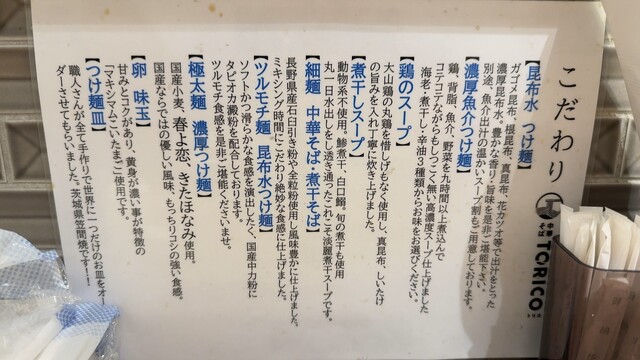 こだわり
中華そば TORICO
【昆布水 つけ麺】
ガゴメ昆布、根昆布、真昆布、花カツオ等で出汁をとった
濃厚昆布水。豊かな香り・旨味を是非ご堪能下さい。
別途、魚介出汁の温かいスープ割もご用意しております。
【濃厚魚介つけ麺】
鶏、背脂、魚介、野菜を九時間以上煮込んで
コテコテながらもしつこく無い高濃度スープ仕上げました
海老・煮干し・辛油の3種類からお味をお選びください。
【鶏のスープ】
大山鶏の丸鶏を惜しげもなく使用し、真昆布、しいたけ
の旨みを入れ丁寧に炊き上げました。
【煮干しスープ】
動物系不使用。鯵煮干、白口鰯、旬の煮干も使用
丸一日水出しをし透き通ったこれこそ淡麗煮干スープです。
【細麺 中華そば・煮干そば】
長野県産石臼引き粉や全粒粉使用し風味豊かに仕上げ、
ミキシング時間にこだわり絶妙な食感に仕上げました。
【ツルモチ麺 昆布水つけ麺】
ソフトかつ滑らかな食感を演出したく、国産中力粉に
タピオカ澱粉を配合しております。
ツルモチ食感を是非ご堪能くださいませ。
【極太麺 濃厚つけ麺】
国産小麦、春よ恋、きたほなみ使用。
国産ならではの優しい風味、もっちりコシの強い食感。
【卵 味玉】
甘みとコクがあり、黄身が濃い事が特徴の
「マキシマムこいたまご」使用です。
【つけ麺皿】
職人さんが全て手作りで世界に一つだけのお皿をオー
ダーさせてもらいました。茨城県笠間焼です！！！